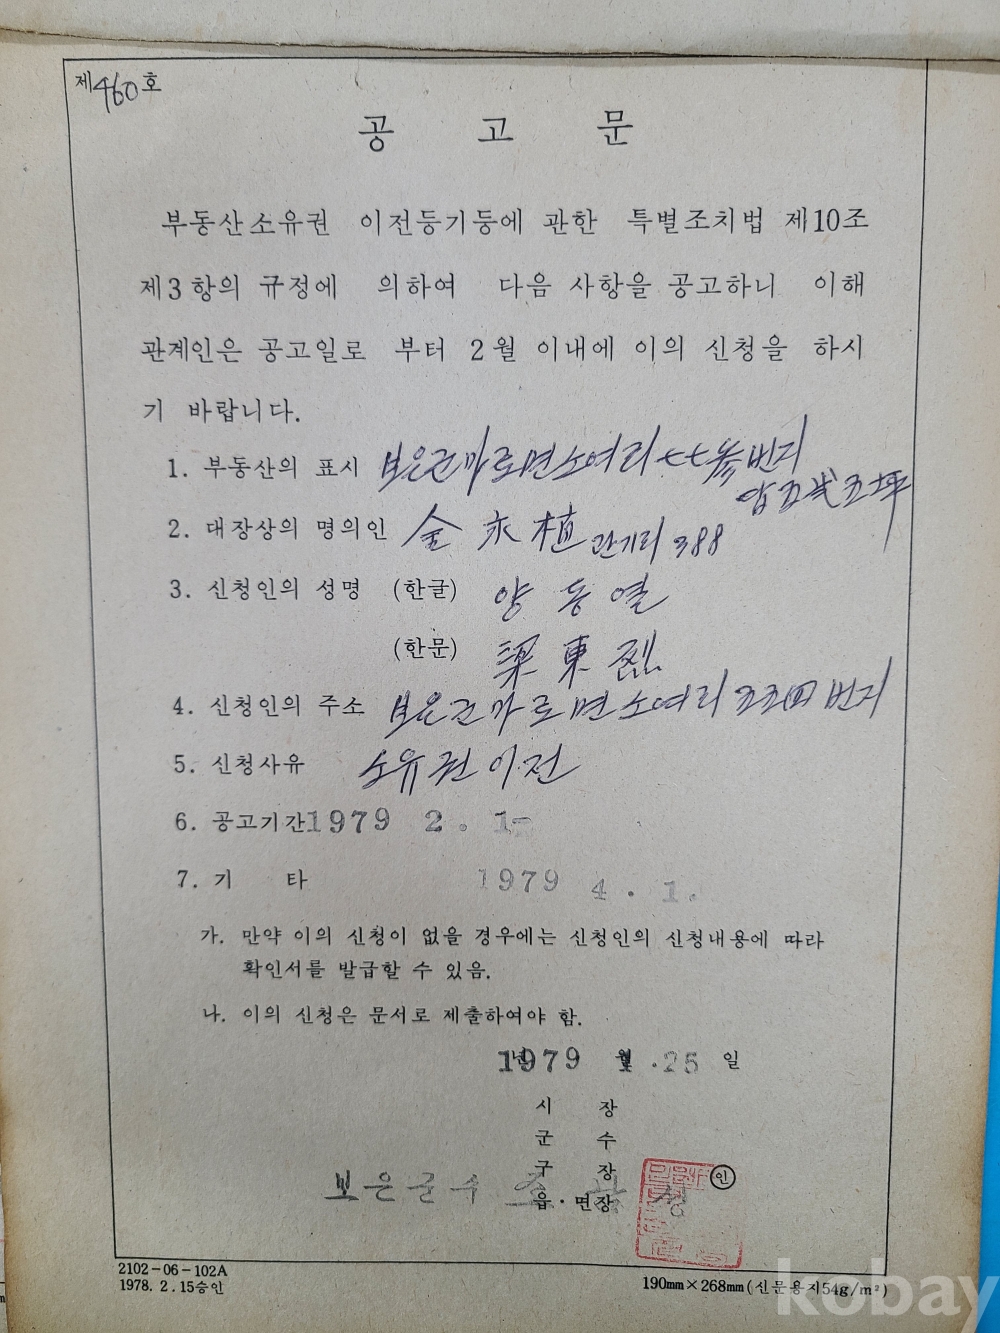 제460호
공 고 문
부동산소유권 이전등기등에 관한 특별조치법 제10조
제3항의 규정에 의하여 다음 사항을 공고하니 이해
관계인은 공고일로 부터 2월 이내에 이의 신청을 하시
기 바랍니다.
1. 부동산의 표시 보은군마로면소여리七七참번지
답五弍五坪
2. 대장상의 명의인 金永植 관기리 388
3. 신청인의 성명 (한글) 양동열
(한문) 梁東烈
4. 신청인의 주소 보은군마로면소여리 五五四번지
5. 신청사유 소유권이전
6. 공고기간 1979 2. 1-
7. 기 타 1979 4. 1.
가. 만약 이의 신청이 없을 경우에는 신청인의 신청내용에 따라
확인서를 발급할 수 있음.
나. 이의 신청은 문서로 제출하여야 함.
1979년 월 .25 일
시 장
군 수
구 장
읍·면장
보은군수 인
2102-06-102A
1978. 2. 15승인
190mm×268mm(신문용지54g/m²)
kobay